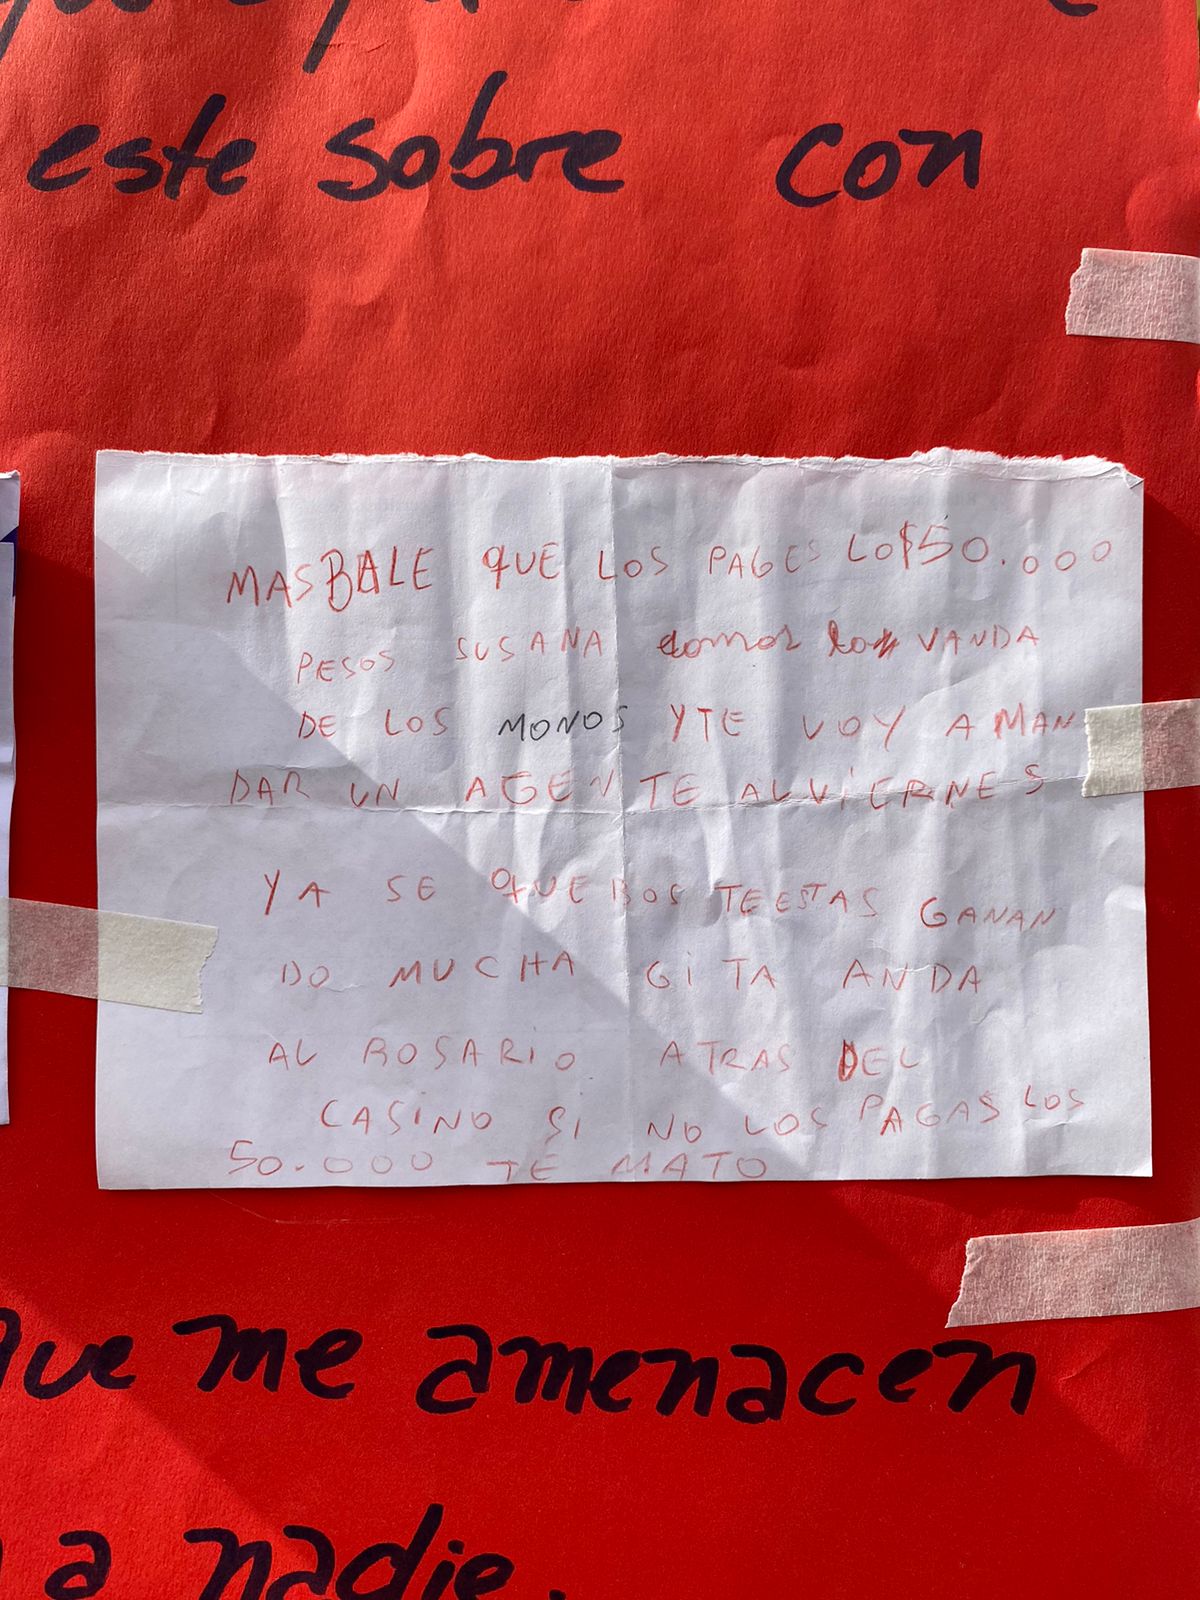 este sobre con
MAS BALE QUE LOS PAGES LO $50.000
PESOS SUSANA somos los VANDA
DE LOS MONOS Y TE VOY A MAN
DAR UN AGENTE AL VIERNES
YA SE QUE BOS TE ESTAS GANAN
DO MUCHA GITA ANDA
AL ROSARIO ATRAS DEL
CASINO SI NO LOS PAGAS LOS
50.000 TE MATO
que me amenacen
a nadie.